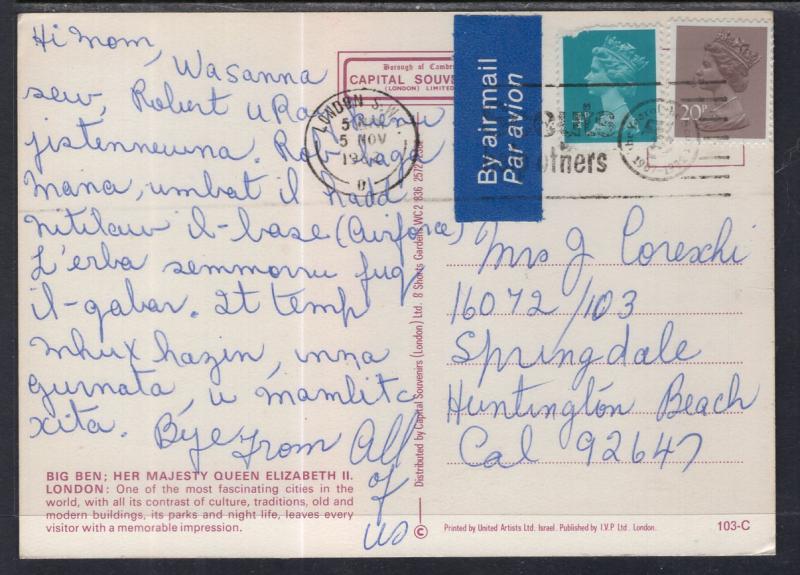 Hi Mom,
Wasanna
sew, Robert u Ray kienu
jistennewna. Rob
Mana, umbat il hadd
nitilaw il-base (Airforce)
L'erba semmorru fuq
il-qabar. It temp
mhux hazin, inna
gurnata, u mamlitx
xita. Bye From All
of
us
BIG BEN; HER MAJESTY QUEEN ELIZABETH II.
LONDON: One of the most fascinating cities in the
world, with all its contrast of culture, traditions, old and
modern buildings, its parks and night life, leaves every
visitor with a memorable impression.
Borough of
CAPITAL SOUVE
(LONDON) LIMITED
LONDON S.W.
5 NOV
By air mail
Par avion
20P
Distributed by Capital Souvenirs (London) Ltd. 8 Shorts Gardens WC2 836
Mrs J Coreschi
16072/103
Springdale
Huntington Beach
Cal 92647
© Printed by United Artists Ltd. Israel. Published by I.V.P Ltd. London.
103-C